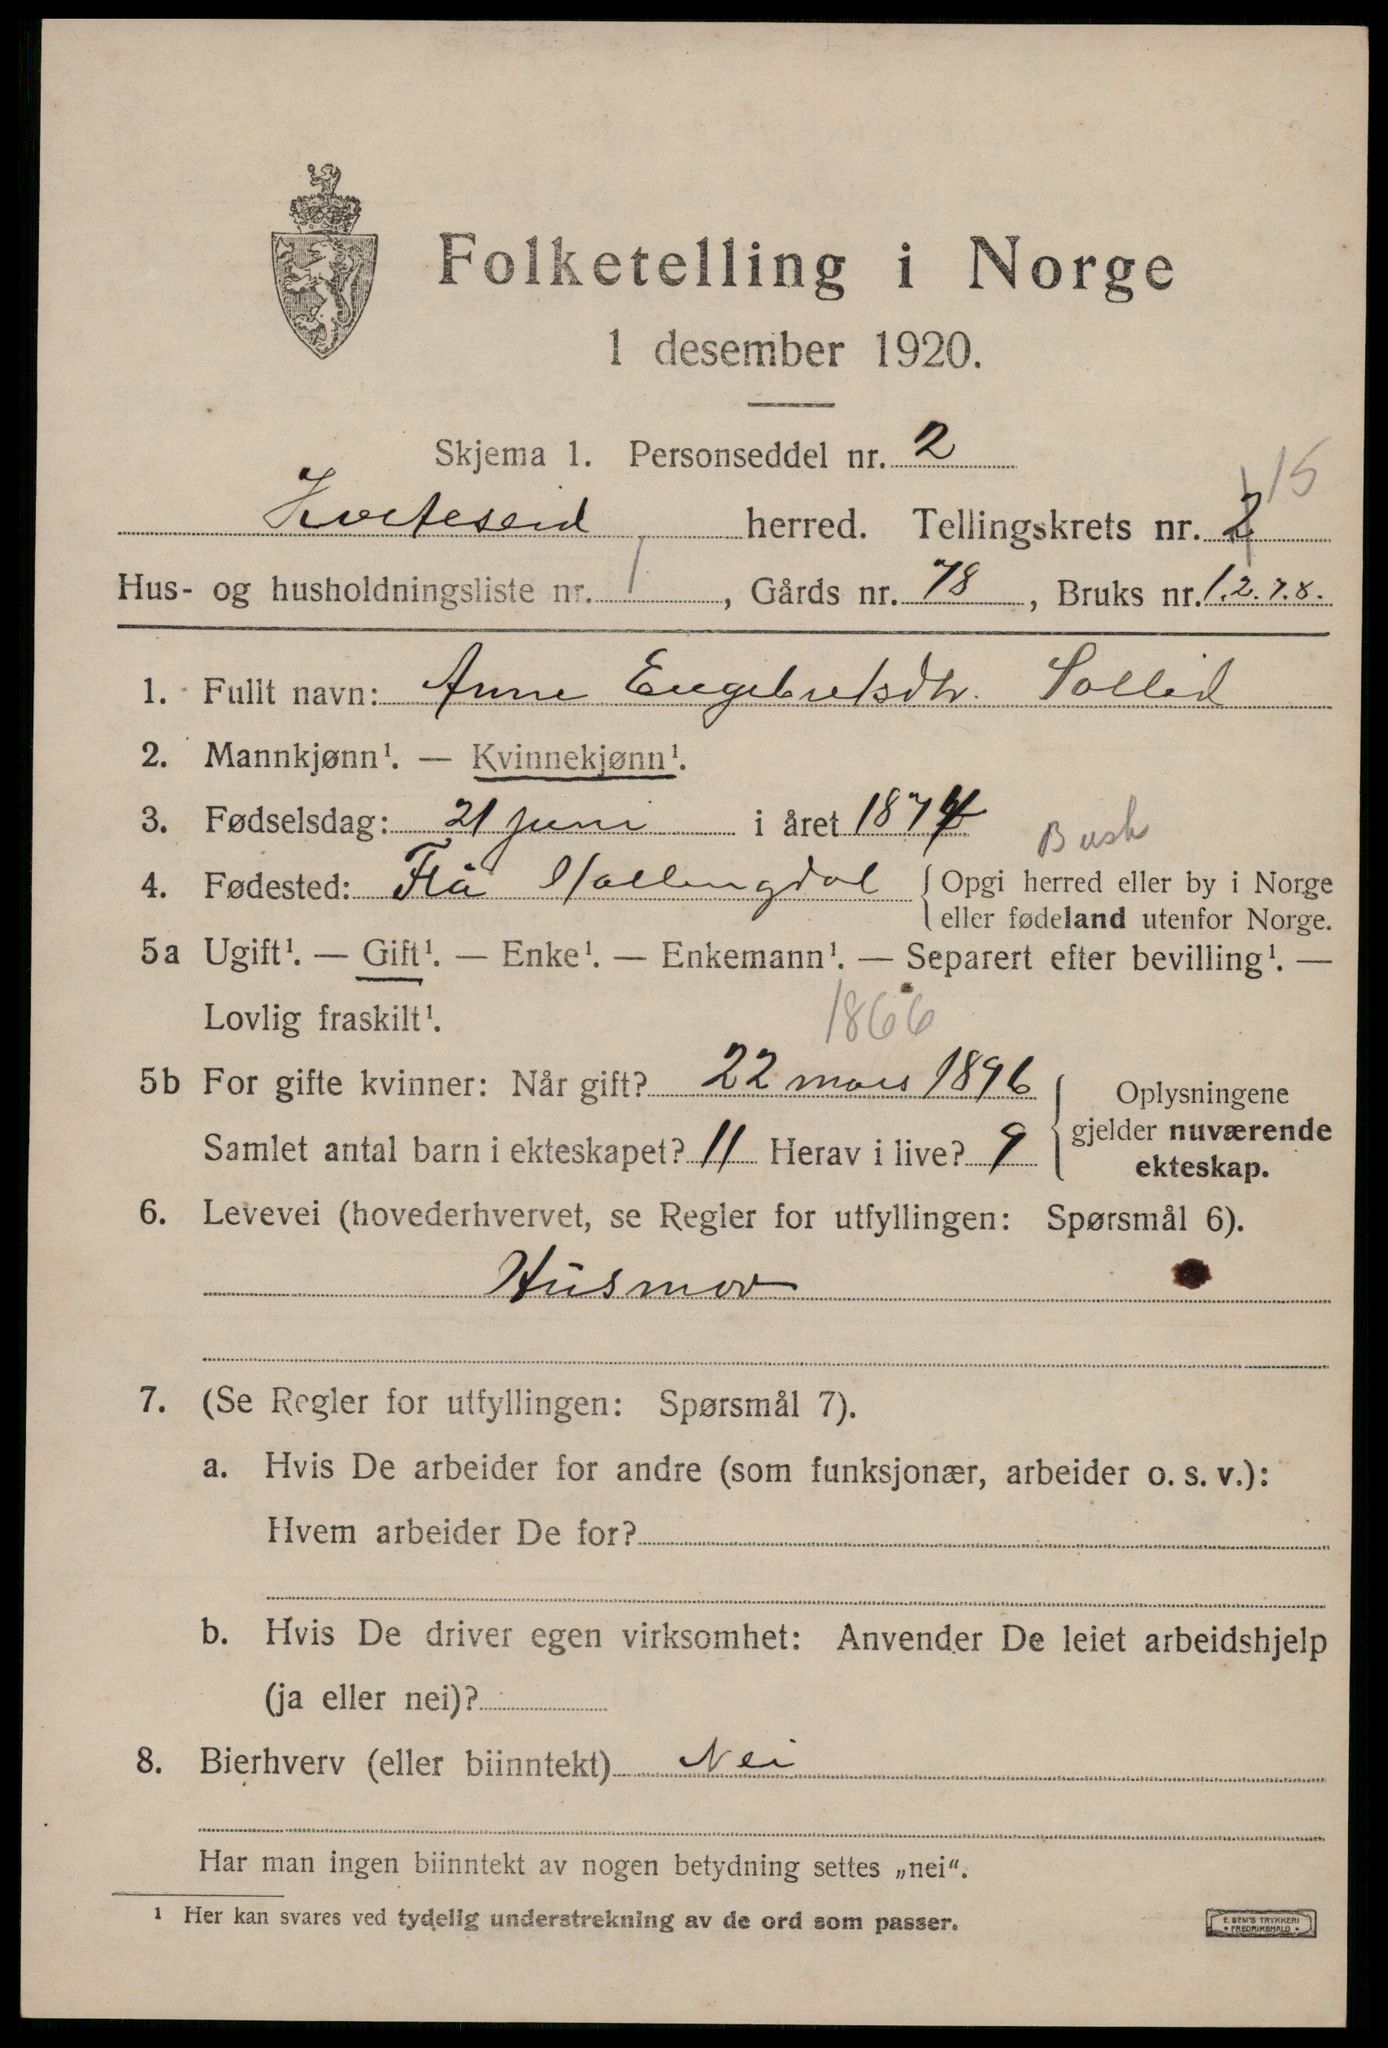 Folketelling i Norge
1 desember 1920.
Skjema 1. Personseddel nr. 2
Kviteseid herred. Tellingskrets nr. 2 15
Hus- og husholdningsliste nr. 1, Gårds nr. 78, Bruks nr. 1.2.7.8.
1. Fullt navn: Anne Engebretsdtr. Sollid
2. Mannkjønn¹. — Kvinnekjønn¹.
3. Fødselsdag: 21 juni i året 1874
Busk
4. Fødested: Flå Hallingdal { Opgi herred eller by i Norge
eller fødeland utenfor Norge.
5a Ugift¹. — Gift¹. — Enke¹. — Enkemann¹. — Separert efter bevilling¹. —
Lovlig fraskilt¹.
1866
5b For gifte kvinner: Når gift? 22 mars 1896
Samlet antal barn i ekteskapet? 11 Herav i live? 9
Oplysningene
gjelder nuværende
ekteskap.
6. Levevei (hovederhvervet, se Regler for utfyllingen: Spørsmål 6).
Husmor
7. (Se Regler for utfyllingen: Spørsmål 7).
a. Hvis De arbeider for andre (som funksjonær, arbeider o. s. v.):
Hvem arbeider De for?
b. Hvis De driver egen virksomhet: Anvender De leiet arbeidshjelp
(ja eller nei)?
8. Bierhverv (eller biinntekt) Nei
Har man ingen biinntekt av nogen betydning settes „nei“.
¹ Her kan svares ved tydelig understrekning av de ord som passer.
E. SEM'S TRYKKERI
FREDRIKSHALD